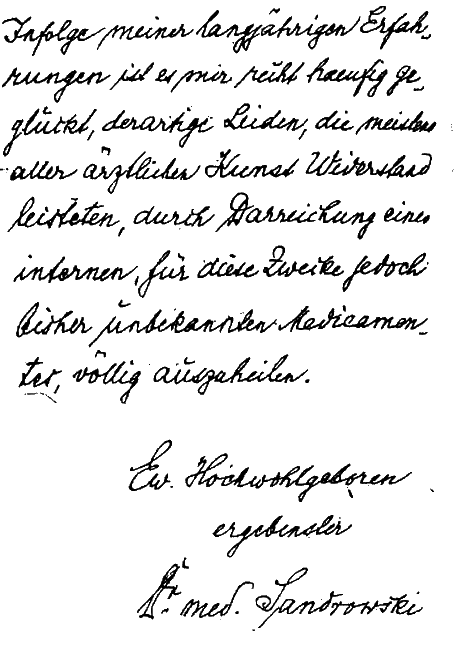 Infolge meiner langjährigen Erfah-
rungen ist es mir recht haeufig ge-
glückt, derartige Leiden, die meistens
aller ärztlichen Kunst Widerstand
leisteten, durch Darreichung eines
internen, für diese Zwecke jedoch
bisher unbekannten Medicamen-
tes, völlig auszuheilen.
Ew. Hochwohlgeboren
ergebenster
Dr. med. Sandrowski